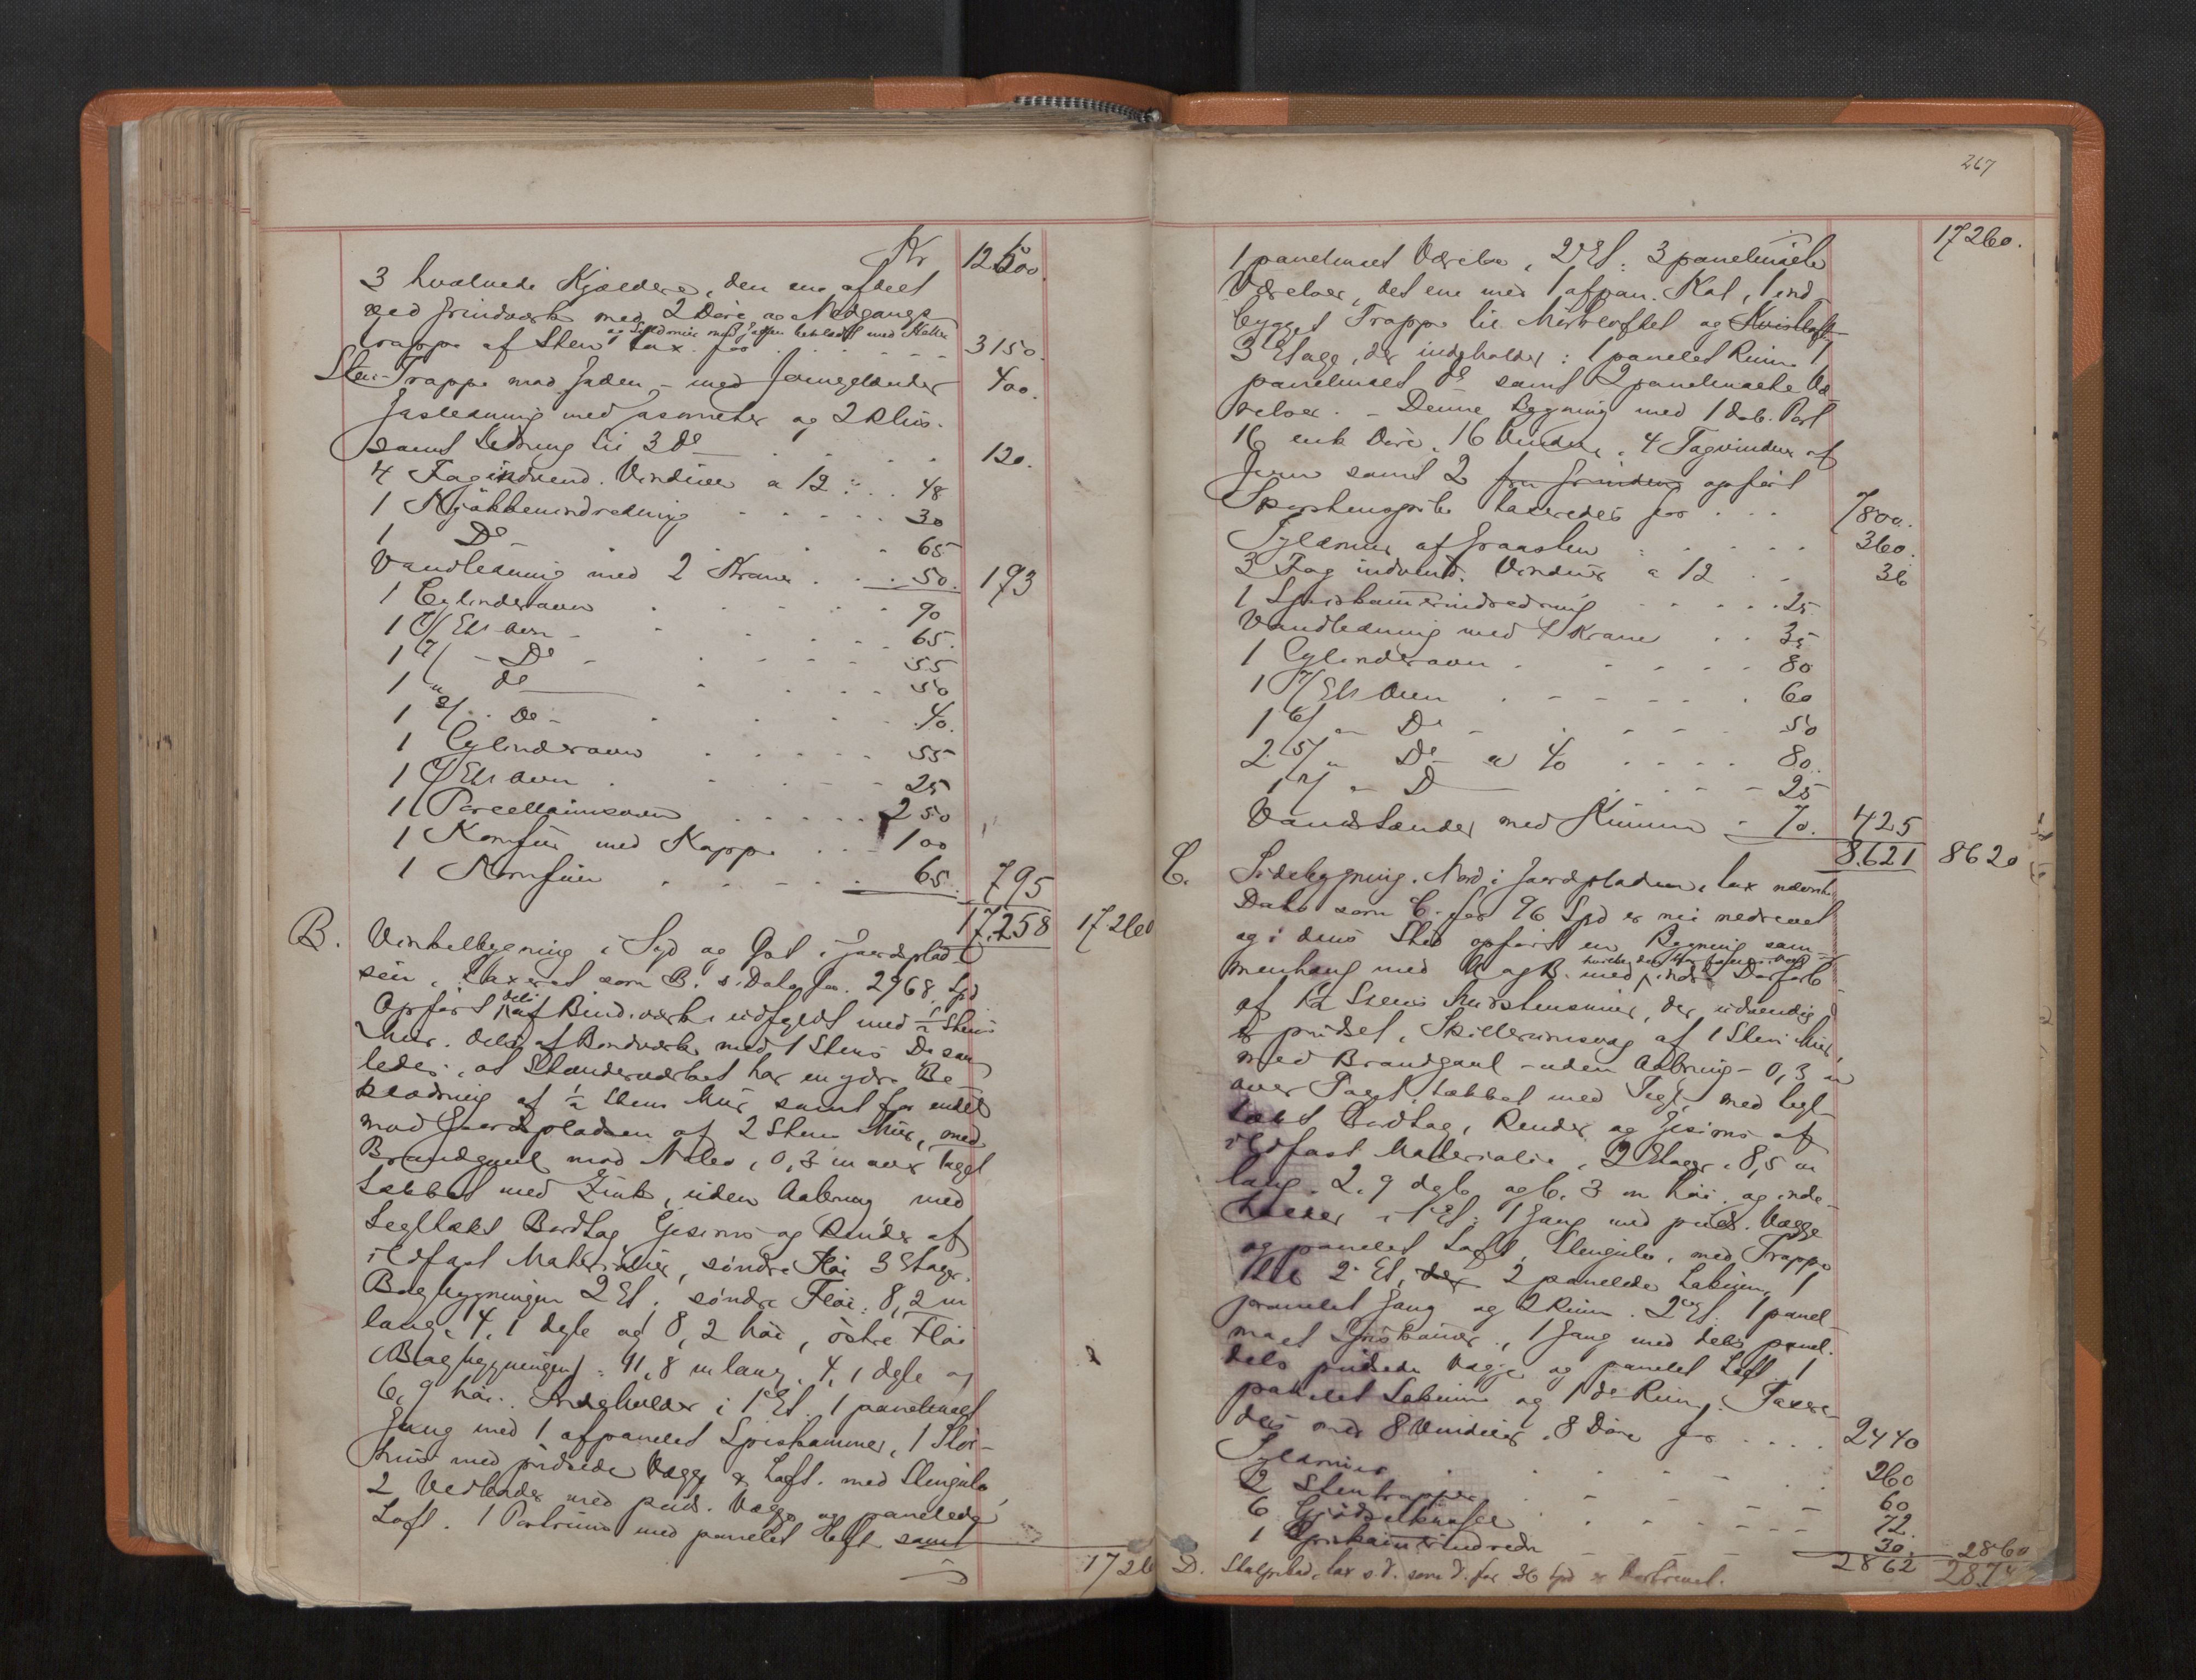 Kr 12600.
3 hvælvede Kjældere, den ene afdeelt
ved Grindværk med 2 Döre og Nedgangs
og Syldmuur mod Gaden beklædt med Heller
trappe af Steen tax. for . . . . . 3150.
Sten-Trappe mod Gaden - med Jerngelænder 400.
Gasledning med Gasmeter og 2 Blus.
samt Ledning til 3 Do . . . . 120.
4 Fag indvend. Vinduer a 12 : . . 48
1 Kjökkenindredning . . . . . 30
1 Do . . . 65
Vandledning med 2 Kraner . . . 50. 193
1 Cylinderovn . . . . . 90
1 Ets ovn - . . . 65.
1 - Do - . . . . 55
1 " do . . . 50
1 3/ " Do - . . . 40.
1 Cylinderovn . . . . . 55
1 Ets ovn . . . . 25
1 Porcellainsovn . . . . . 250
1 Komfur med Kappe . . . 100
1 Komfur . . . . . 65. 795
17.258 17260
B. Vinkelbygning i Syd og Öst i Gaardsplad-
sen, taxeret som B. s. Dato for 2968 Spd
Opfört dels af Bindværk udfyldt med ½ Stens
Muur. dels af Bindværk med 1 Stens Do saa-
ledes, at Stænderværket har en ydre Be-
klædning af ½ Stens Muur samt for endel
mod Gaardspladsen af 2 Stens Muur, med
Brandgavl mod Nabo, 0,3 m over Taget
tækket med Zink, uden Aabning med
Tegltækt Bordtag Gesims og Render af
ildfast Materialier, söndre Flöi 3 Etager.
Bagbygningen 2 Et. söndre Flöi: 8,2 m
lang, 4,1 dyb og 8,2 höi, östre Flöi
(Bagbygningen): 11,8 m lang, 4,1 dyb og
6,9 höi. Indeholder i 1 Et. 1 panelmalt
Gang med 1 afpanelet Spiskammer, 1 Stor-
hus med pudsede Vægge & Loft. med Stengulv,
2 Vedboder med puds. Vægge og panelede
Loft. 1 Portrum med panelet Loft samt
1726
267
17260.
1 panelmalet Værelse, 2 Et: 3 panelmalte
Værelser, det ene med 1 afpan. Kot, 1 ind-
bygget Trappe til Mörkloftet og Kvistloft
3 Etage, der indeholder: 1 panelet Rum 1
panelmalet do samt 2 panelmalte Væ-
relser. - Denne Bygning med 1 dob. Port
16 enk Döre, 16 Vinduer, 4 Tagvinduer af
Jern samt 2 fra Grunden opfört
Skorstenspibe taxeredes for . . . 7800.
Syldmur af Graasten : . . . . . 360.
3 Fag indvend. Vinduer a 12 . . 36
1 Spiskammerindredning . . . . . 25
Vandledning med 1 Krane . . 35
1 Cylinderovn . . . . . 80
1 7/ Ets Ovn . . . . . 60
1 6/ " Do - . . . . 50
2 5/ " Do a 40 . . . . 80.
1 " D . . . . 25
Vandstænder med Kumme - 70. 425
8.621 8620
C. Sidebygning. Nord i Gaardspladsen, tax nævnte
Dato som C. for 96 Spd er nu nedrevet
og i dens Sted opfört en Bygning sam-
menhæng med A og B. med indre Dörforb
af ½ Stens Murstensmuur, der udvendig
er pudset, Skillerumsvæg af 1 Sten Muur,
med Brandgavl - uden Aabning - 0,3 m
over Taget, tækket med Tegl, med tegl-
tækt Bordtag, Render og Gesims af
ildfast Materialie, 2 Etager, 8,5 m
lang, 2,9 dyb og 6,3 m höi. og inde-
holder i 1 Et: 1 Gang med puds. Vægge
og panelet Loft, Stengulv, med Trappe
til 2. Et, der 2 panelede Lokum, 1
panelet Gang og 2 Rum. 2 Et: 1 panel-
malet Spiskammer, 1 Gang med dels panel.
dels pudsede Vægge og panelet Loft. 1
panelet Lokum og 1 do Rum. Taxere-
des med 8 Vinduer, 8 Döre for . . . . 2440
Syldmuur . . . . . 260
2 Stentrapper . - - - - 60
6 . . . . . 72.
1 Spiskammerindredn - - - - 30. 2860
2862
D. Skalpebod, tax s. D. som D. for 36 Spd er bortrevet. 287